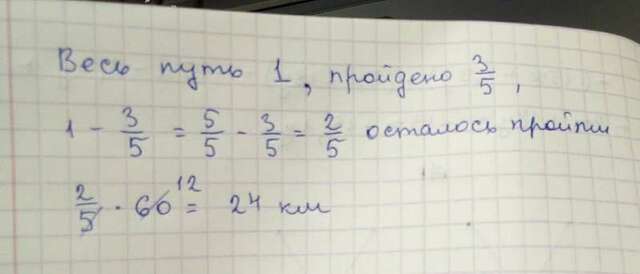 Весь путь 1, пройдено 3/5,
1 - 3/5 = 5/5 - 3/5 = 2/5 осталось пройти
2/5 · 60 12 = 24 км